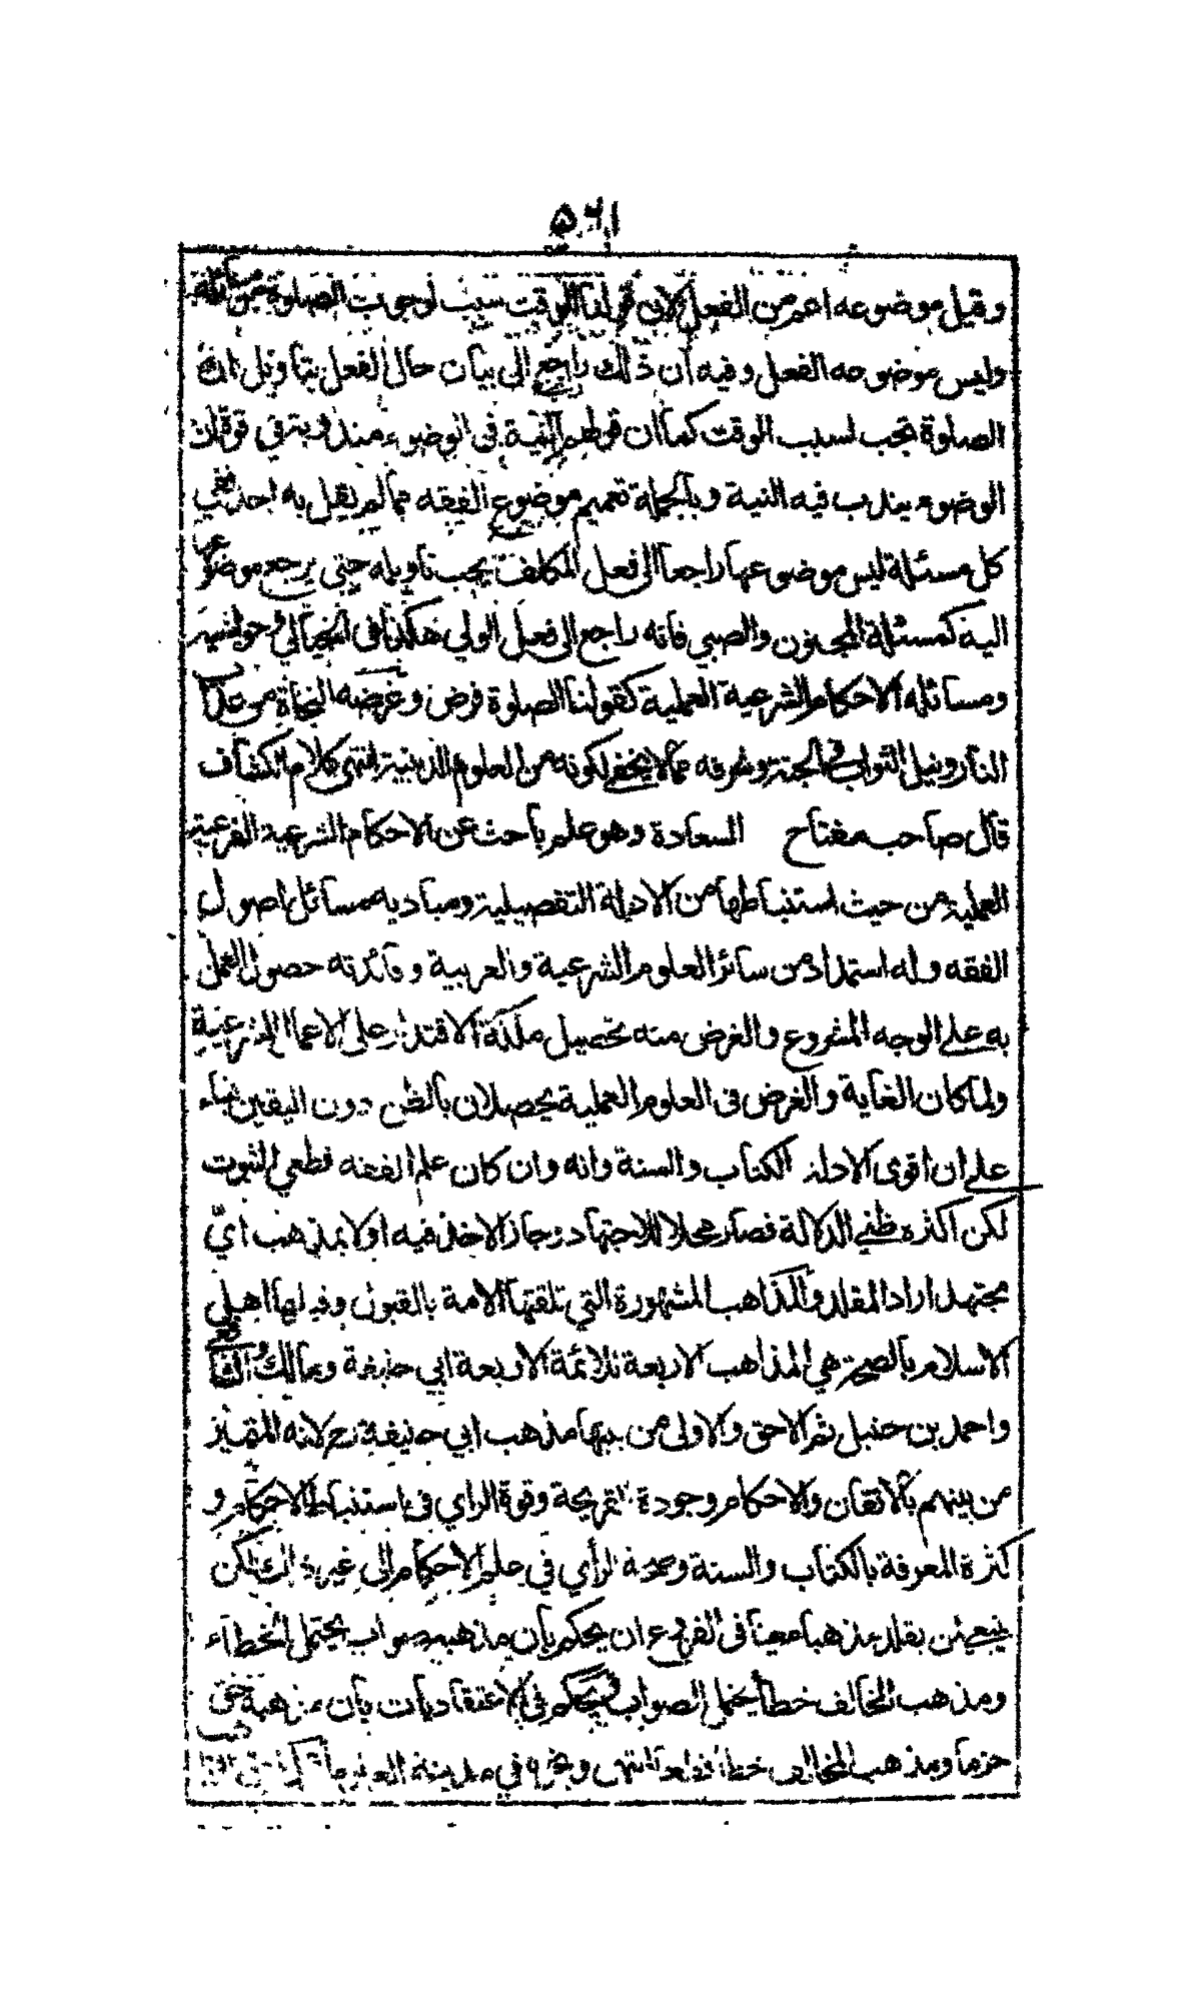 ۵۶۱
وقيل موضوعه اعم من الفعل لان قولنا الوقت سبب لوجوب الصلوة من مسائله
وليس موضوعه الفعل وفيه ان ذلك راجع الى بيان حال الفعل بتاويل ان
الصلوة تجب لسبب الوقت كما ان قولهم النية فى الوضوء مندوبة فى قوة ان
الوضوء يندب فيه النية وبالجملة تعميم موضوع الفقه مما لم يقل به احد ففي
كل مسئلة ليس موضوعها راجعا الى فعل المكلف يجب تاويله حتى يرجع موضوعها
اليه كمسئلة المجنون والصبي فانه راجع الى فعل الولي هكذا فى الخيالي وحواشيه
ومسائله الاحكام الشرعية العملية كقولنا الصلوة فرض وغرضه النجاة من عذاب
النار ونيل الثواب فى الجنة وشرفه مما لا يخفى لكونه من العلوم الدينية انتهى كلام الكشاف
قال صاحب مفتاح السعادة وهو علم باحث عن الاحكام الشرعية الفرعية
العملية من حيث استنباطها من الادلة التفصيلية ومباديه مسائل اصول
الفقه وله استمداد من سائر العلوم الشرعية والعربية وفائدته حصول العمل
به على الوجه المشروع والغرض منه تحصيل ملكة الاقتدار على الاعمال الشرعية
ولما كان الغاية والغرض فى العلوم العملية يحصلان بالظن دون اليقين بناء
على ان اقوى الادلة الكتاب والسنة وانه وان كان علم الفقه قطعي الثبوت
لكن اكثره ظني الدلالة فصار محلا للاجتهاد وجاز الاخذ فيه اولا بمذهب ايّ
مجتهد اراد المقلد والمذاهب المشهورة التي تلقتها الامة بالقبول وقبلها اهل
الاسلام بالصحة هي المذاهب الاربعة للائمة الاربعة ابي حنيفة ومالك والشافعي
واحمد بن حنبل ثم الاحق والاولى من بينها مذهب ابي حنيفة رح لانه المتميز
من بينهم بالاتقان والاحكام وجودة القريحة وقوة الراي فى استنباط الاحكام و
كثرة المعرفة بالكتاب والسنة وصحة الرأي في علم الاحكام الى غير ذلك لكن
ينبغي لمن يقلد مذهبا معينا فى الفروع ان يحكم بان مذهبه صواب يحتمل الخطاء
ومذهب المخالف خطأ يحتمل الصواب ويحكم فى الاعتقاديات بان مذهبه حق
جزما ومذهب المخالف خطأ قطعا انتهى ونحوه في مدينة العلوم